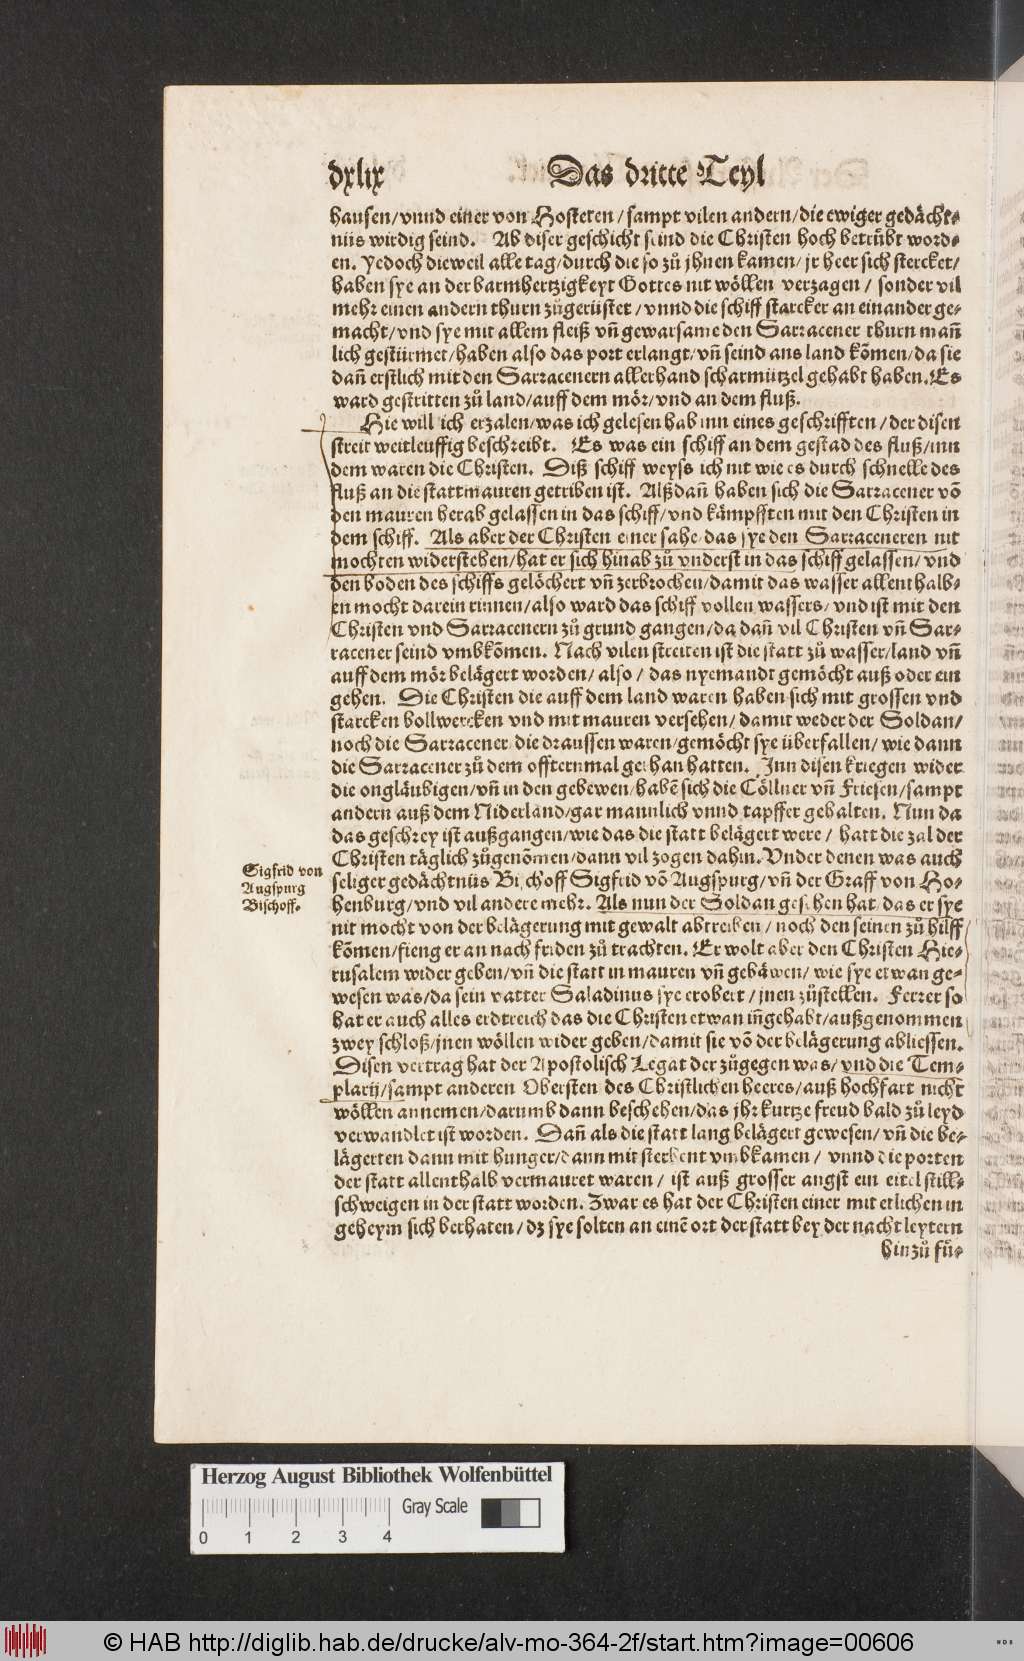 dxlix Das dritte Teyl
hausen/vnnd einer von Hosteten/sampt vilen andern/die ewiger gedächt⸗
nüs wirdig seind. Ab diser geschicht seind die Christen hoch betrübt word⸗
en. Yedoch dieweil alle tag/durch die so zů jhnen kamen/jr heer sich stercket/
haben sye an der barmhertzigkeyt Gottes nit wöllen verzagen/sonder vil
mehr einen andern thurn zůgerüstet/vnnd die schiff starcker an einander ge⸗
macht/vnd sye mit allem fleiß vñ gewarsame den Sarracener thurn mañ
lich gestürmet/haben also das port erlangt/vñ seind ans land kõmen/da sie
dañ erstlich mit den Sarracenern allerhand scharmützel gehabt haben. Es
ward gestritten zů land/auff dem mör/vnd an dem fluß.
Hie will ich erzalen/was ich gelesen hab inn eines geschrifften/der disen
streit weitleuffig beschreibt. Es was ein schiff an dem gestad des fluß/inn
dem waren die Christen. Diß schiff weyss ich nit wie es durch schnelle des
fluß an die stattmauren getriben ist. Alßdañ haben sich die Sarracener võ
den mauren herab gelassen in das schiff/vnd kämpfften mit den Christen in
dem schiff. Als aber der Christen einer sahe/das sye den Sarraceneren nit
mochten widerstehen/hat er sich hinab zů vnderst in das schiff gelassen/vnd
den boden des schiffs gelöchert vñ zerbrochen/damit das wasser allenthalb⸗
en mocht darein rinnen/also ward das schiff vollen wassers/vnd ist mit den
Christen vnd Sarracenern zů grund gangen/da dañ vil Christen vñ Sar⸗
racener seind vmbkõmen. Nach vilen streiten ist die statt zů wasser/land vñ
auff dem mör belägert worden/also/das nyemandt gemöcht auß oder ein
gehen. Die Christen die auff dem land waren haben sich mit grossen vnd
starcken bollwercken vnd mit mauren versehen/damit weder der Soldan/
noch die Sarracener die draussen waren/gemöcht sye überfallen/wie dann
die Sarracener zů dem offternmal gethan hatten. Inn disen kriegen wider
die ongläubigen/vñ in den gebewen/habẽ sich die Cöllner vñ Friesen/sampt
andern auß dem Niderland/gar mannlich vnnd tapffer gehalten. Nun da
das geschrey ist außgangen/wie das die statt belägert were/hatt die zal der
Christen täglich zůgenõmen/dann vil zogen dahin. Vnder denen was auch
Sigfrid von
Augspurg
Bischoff.
seliger gedächtnüs Bischoff Sigfrid võ Augspurg/vñ der Graff von Ho⸗
henburg/vnd vil andere mehr. Als nun der Soldan gesehen hat/das er sye
nit mocht von der belägerung mit gewalt abtreiben/noch den seinen zů hilff
kõmen/fieng er an nach friden zů trachten. Er wolt aber den Christen Hie⸗
rusalem wider geben/vñ die statt in mauren vñ gebäwen/wie sye etwan ge⸗
wesen was/da sein vatter Saladinus sye erobert/jnen zůstellen. Ferrer so
hat er auch alles erdtreich das die Christen etwan iñgehabt/außgenommen
zwey schloß/jnen wöllen wider geben/damit sie võ der belägerung abliessen.
Disen vertrag hat der Apostolisch Legat der zůgegen was/vnd die Tem⸗
plarij/sampt anderen Obersten des Christlichen heeres/auß hochfart nicht
wöllen annemen/darumb dann beschehen/das jhr kurtze freud bald zů leyd
verwandlet ist worden. Dañ als die statt lang belägert gewesen/vñ die be⸗
lägerten dann mit hunger/dann mit sterbent vmbkamen/vnnd die porten
der statt allenthalb vermauret waren/ist auß grosser angst ein eitel still⸗
schweigen in der statt worden. Zwar es hat der Christen einer mit etlichen in
geheym sich berhaten/dz sye solten an einẽ ort der statt bey der nacht leytern
hinzů fü⸗
Herzog August Bibliothek Wolfenbüttel
Gray Scale
0 1 2 3 4
© HAB http://diglib.hab.de/drucke/alv-mo-364-2f/start.htm?image=00606